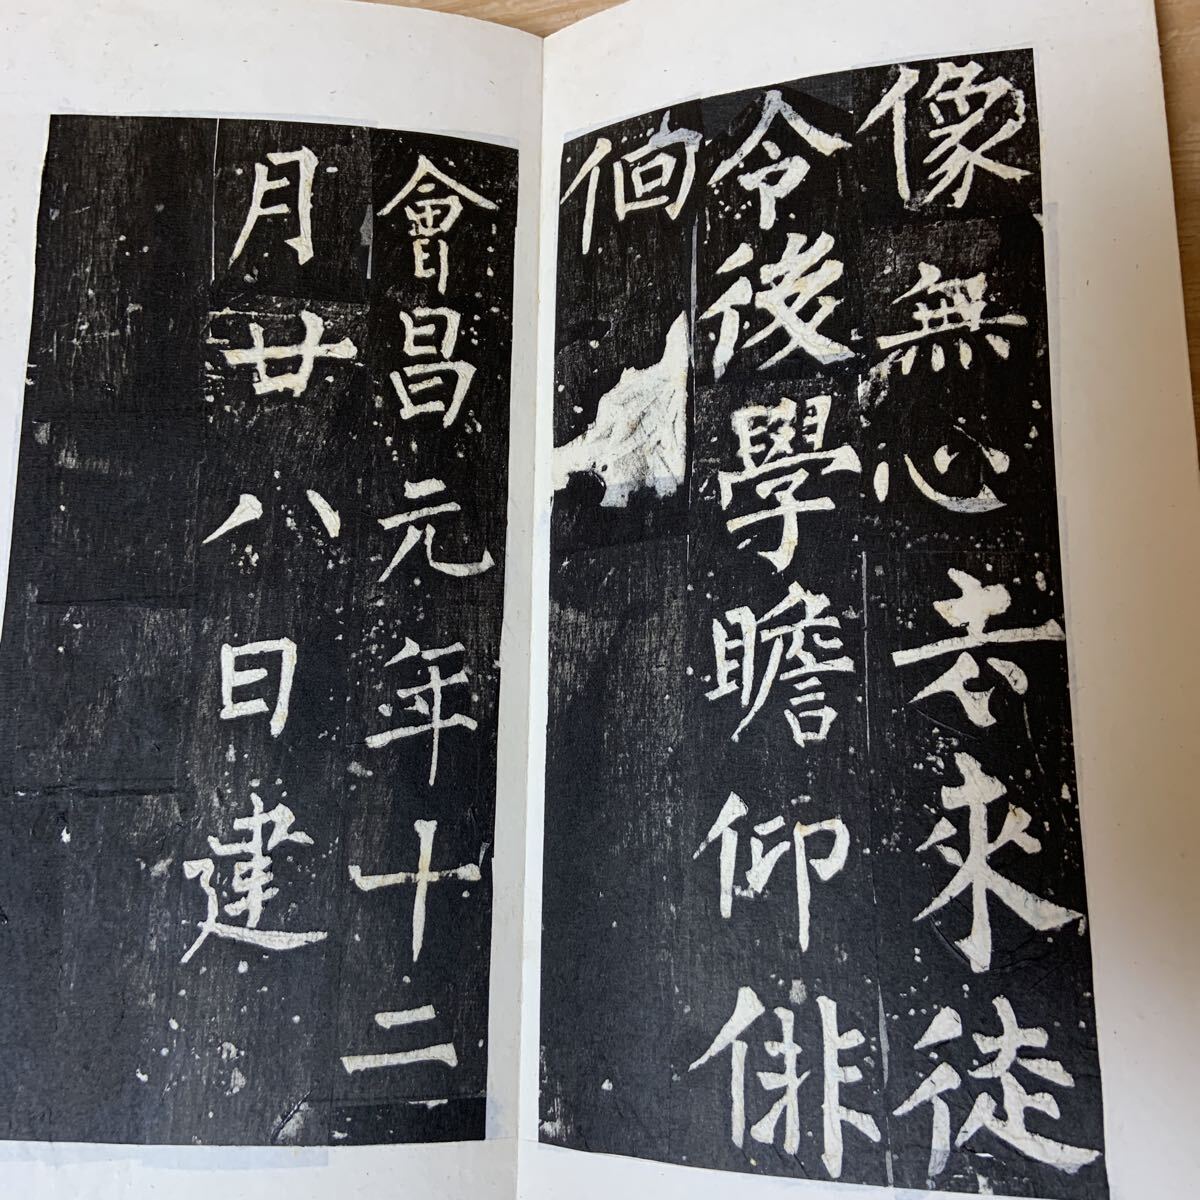 像無心去來徒
令後學瞻仰俳
佪
會昌元年十二
月廿八日建